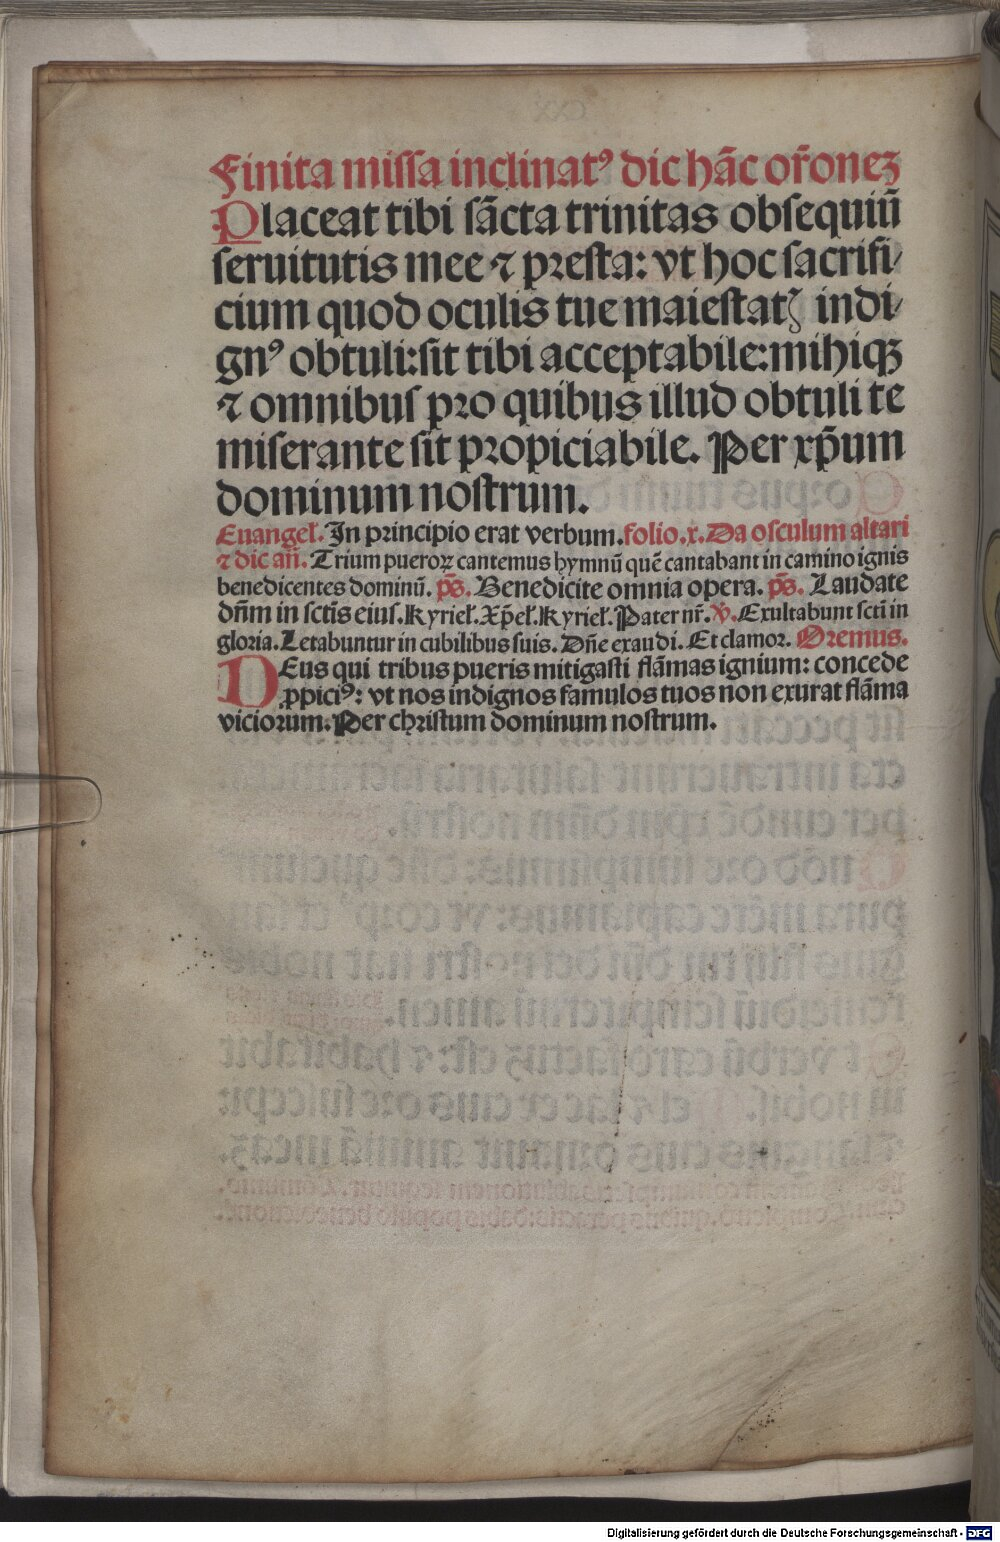 Finita missa inclinatꝰ dic hãc or̃onez
Placeat tibi sãcta trinitas obsequiũ
seruitutis mee ⁊ presta: vt hoc sacrifi/
cium quod oculis tue maiestatꝭ indi/
gnꝰ obtuli: sit tibi acceptabile: mihiqꝫ
⁊ omnibus pro quibus illud obtuli te
miserante sit propiciabile. Per xp̃um
dominum nostrum.
Euangel̃. In principio erat verbum. folio .x. Da osculum altari
⁊ dic añ. Trium pueroꝝ cantemus hymnũ quẽ cantabant in camino ignis
benedicentes dominũ. p̃s. Benedicite omnia opera. p̃s. Laudate
dñm in sctĩs eius. Kyriel̃. Xp̃el̃. Kyriel̃. Pater nr̃. ℣. Exultabunt sctĩ in
gloria. Letabuntur in cubilibus suis. Dñe exaudi. Et clamor. Oremus.
DEus qui tribus pueris mitigasti flãmas ignium: concede
ꝓpiciꝰ: vt nos indignos famulos tuos non exurat flãma
viciorum. Per christum dominum nostrum.
Digitalisierung gefördert durch die Deutsche Forschungsgemeinschaft - DFG